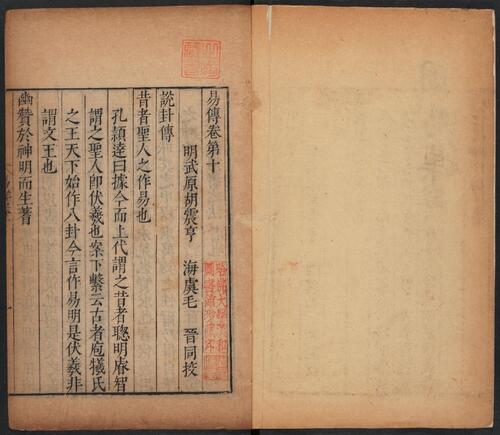 易傳卷第十
明武原胡震亨 海虞毛 晉同挍
說卦傳
昔者聖人之作易也
孔頴達曰據今而上代謂之昔者聦明睿智
謂之聖人卽伏羲也案下繫云古者庖犧氏
之王天下始作八卦今言作易明是伏羲非
謂文王也
幽贊於神明而生蓍
哈佛大學漢和
圖書館珍藏印